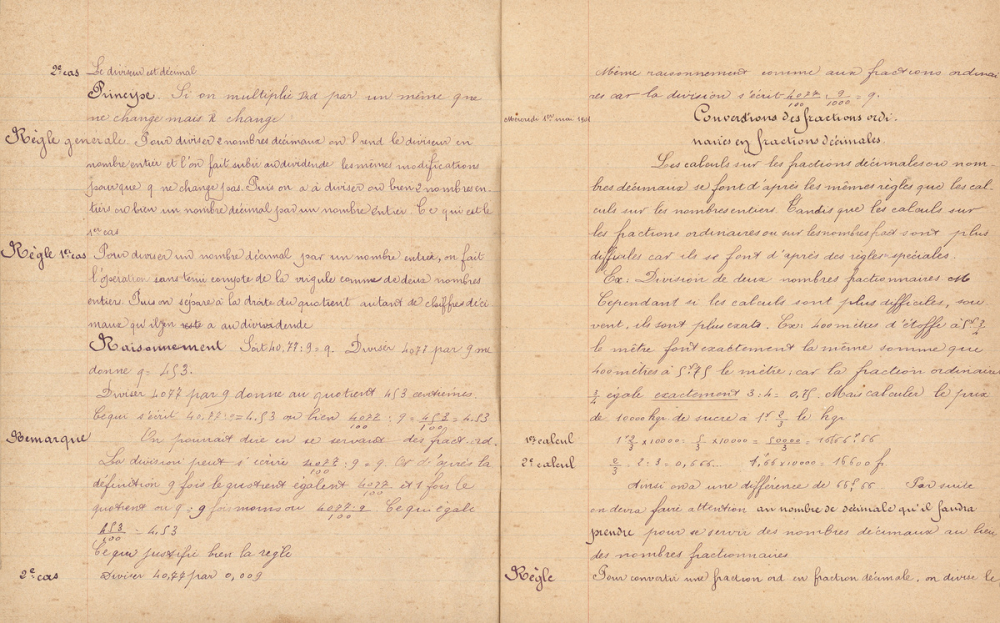 2e cas Le diviseur est décimal
Principe. Si on multiplie D et d par un même q ne
ne change mais R change
Règle générale. Pour diviser 2 nombres décimaux on rend le diviseur en
nombre entier et l'on fait subir au dividende les mêmes modifications
pour que q ne change pas. Puis on a à diviser ou bien 2 nombres en-
tier ou bien un nombre décimal par un nombre entier. Ce qui est le
1er cas
Règle 1er cas Pour diviser un nombre décimal par un nombre entier, on fait
l'opération sans tenir compte de la virgule comme de deux nombres
entiers. Puis on sépare à la droite du quotient autant de chiffres déci
maux qu'il y en reste a au dividende
Raisonnement Soit 40,77 : 9 = q. Diviser 4077 par 9 me
donne q = 453.
Diviser 4077 par 9 donne au quotient 453 centièmes.
Ce qui s'écrit 40.77:9=4.53 ou bien 4077/100 : 9 = 453/100 = 4.53
Remarque On pourrait dire en se servant des fract. ord.
La division peut s'écrire 4077/100 : 9 = q. Or d'après la
définition 9 fois le quotient égalent 4077/100 et 1 fois le
quotient ou q = 9 fois moins ou 4077:9/100 Ce qui égale
453/100 = 4.53
Ce qui justifie bien la règle
2e cas Diviser 40,77 par 0,009
Même raisonnement comme aux fractions ordinai
res car la division s'écrit 4077/100 : 9/1000 = q.
Mercredi 1er mai 1901 Conversions des fractions ordi.
naires en fractions décimales.
Les calculs sur les fractions décimales ou nom-
bres décimaux se font d'après les mêmes règles que les cal-
culs sur les nombres entiers. Tandis que les calculs sur
les fractions ordinaires ou sur les nombres frait sont plus
difficiles car ils se font d'après des règles spéciales.
Ex: Division de deux nombres fractionnaires
Cependant si les calculs sont plus difficiles, sou
vent, ils sont plus exats. Ex: 400 mètres d'étoffe à 5f 3/4
le mètre font exactement la même somme que
400 mètres à 5f,75 le mètre; car la fraction ordinaire
3/4 égale exactement 3:4 = 0,75. Mais calculer le prix
de 10000 kgr de sucre à 1f 2/3 le kgr
1er calcul 1f 2/3 x 10000 = 5/3 x 10000 = 50000/3 = 16666f66
2e calcul 2/3 = 2:3 = 0,666... 1,66 x 10000 = 16600f
Ainsi on a une différence de 66f66 Par suite
on devra faire attention au nombre de décimale qu'il faudra
prendre pour se servir des nombres décimaux au lieu
des nombres fractionnaires.
Règle Pour convertir une fraction ord en fraction décimale, on divise le